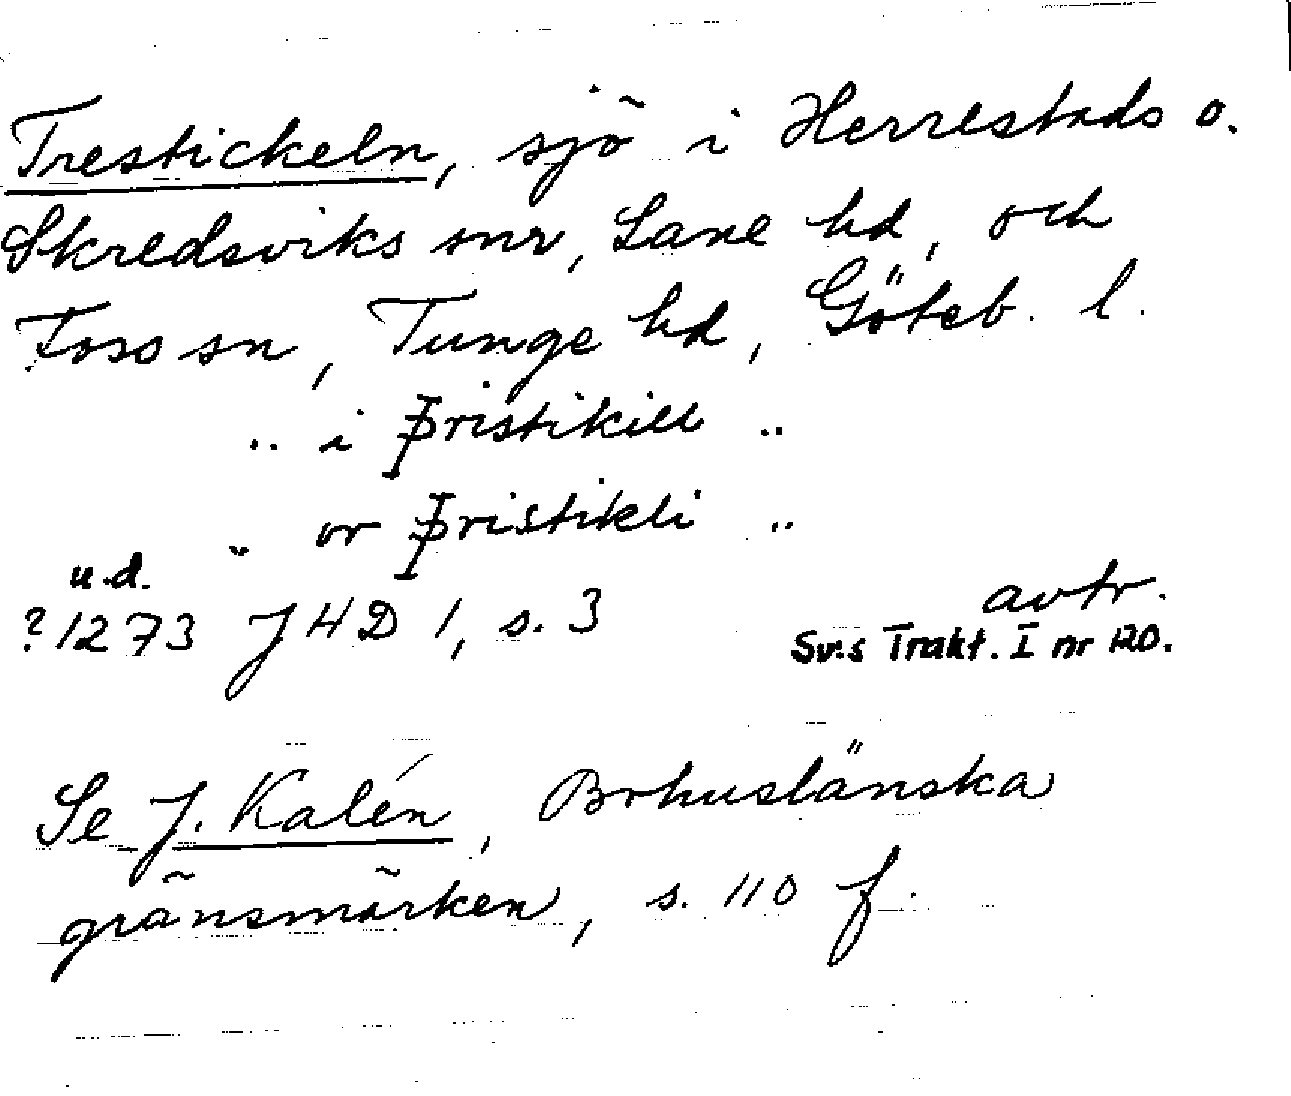 Trestickeln, sjö i Herrestads o.
Skredsviks snr, Lane hd, och
Foss sn, Tunge hd, Göteb. l.
" i Þristikill "
" or Þristikli "
u.d.
?1273 JHD 1, s. 3 avtr.
Sv:s Trakt. I nr 120.
Se J. Kalén, Bohuslänska
gränsmärken, s. 110 f.